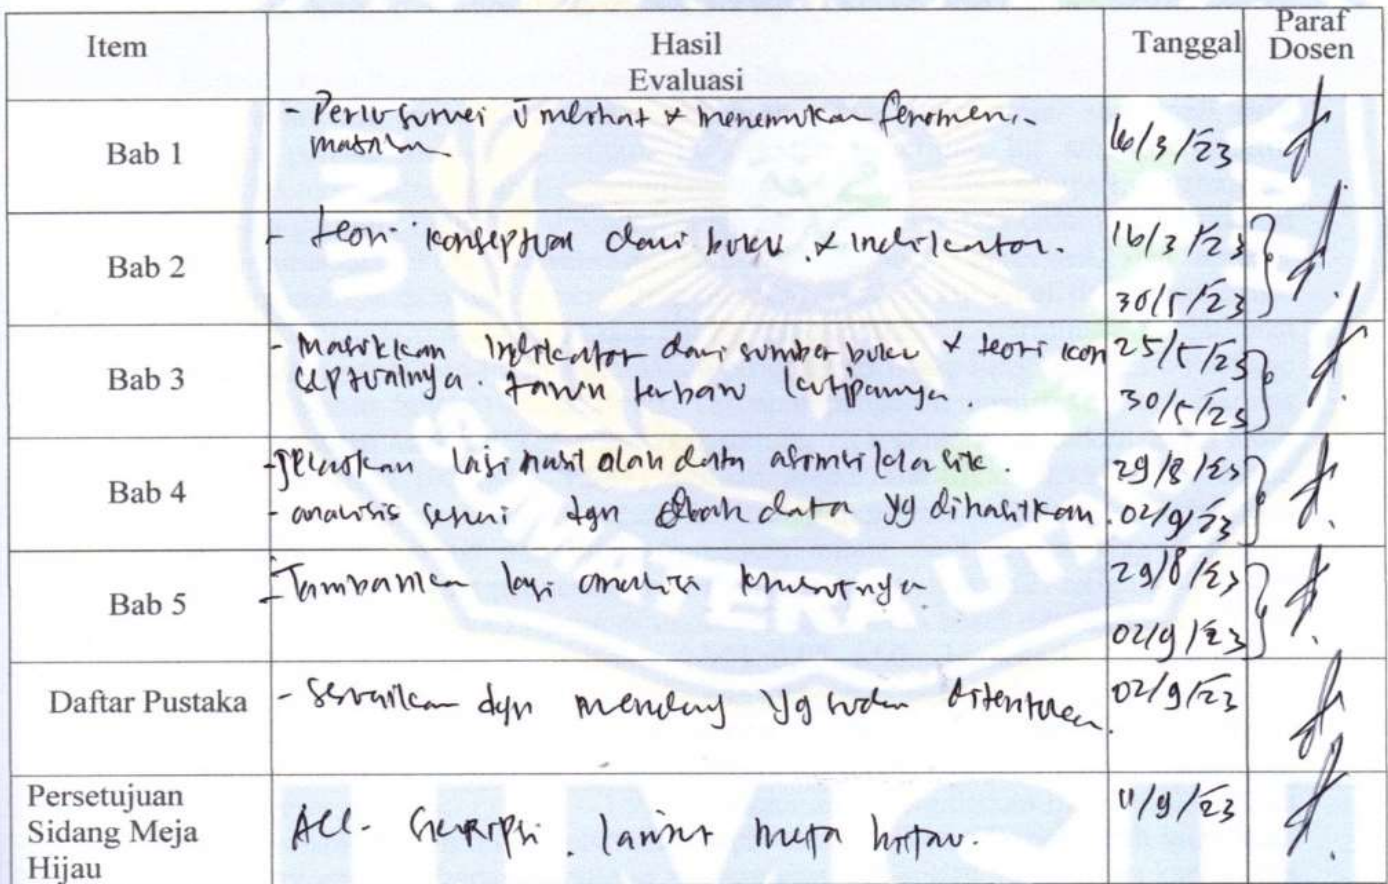 Item Hasil Evaluasi Tanggal Paraf Dosen
Bab 1
- Perlu survei U melihat & menemukan fenomena
masalah
16/3/'23
Bab 2
- teori konseptual dari buku & indikator.
16/3/'23
30/5/'23
Bab 3
- Masukkan Indikator dari sumber buku & teori kon
septualnya. tahun terbaru kutipannya.
25/5/'23
30/5/'23
Bab 4
- Jelaskan lagi hasil olah data asumsi klasik.
- analisis sesuai dgn olah data yg dihasilkan.
29/8/'23
02/9/'23
Bab 5
- Tambahkan lagi analisis
29/8/'23
02/9/'23
Daftar Pustaka
- Sesuaikan dgn yg sudah ditentukan.
02/9/'23
Persetujuan
Sidang Meja
Hijau
Acc. Skripsi. lanjut meja hijau.
11/9/'23
SUMATERA UTARA
UMSU